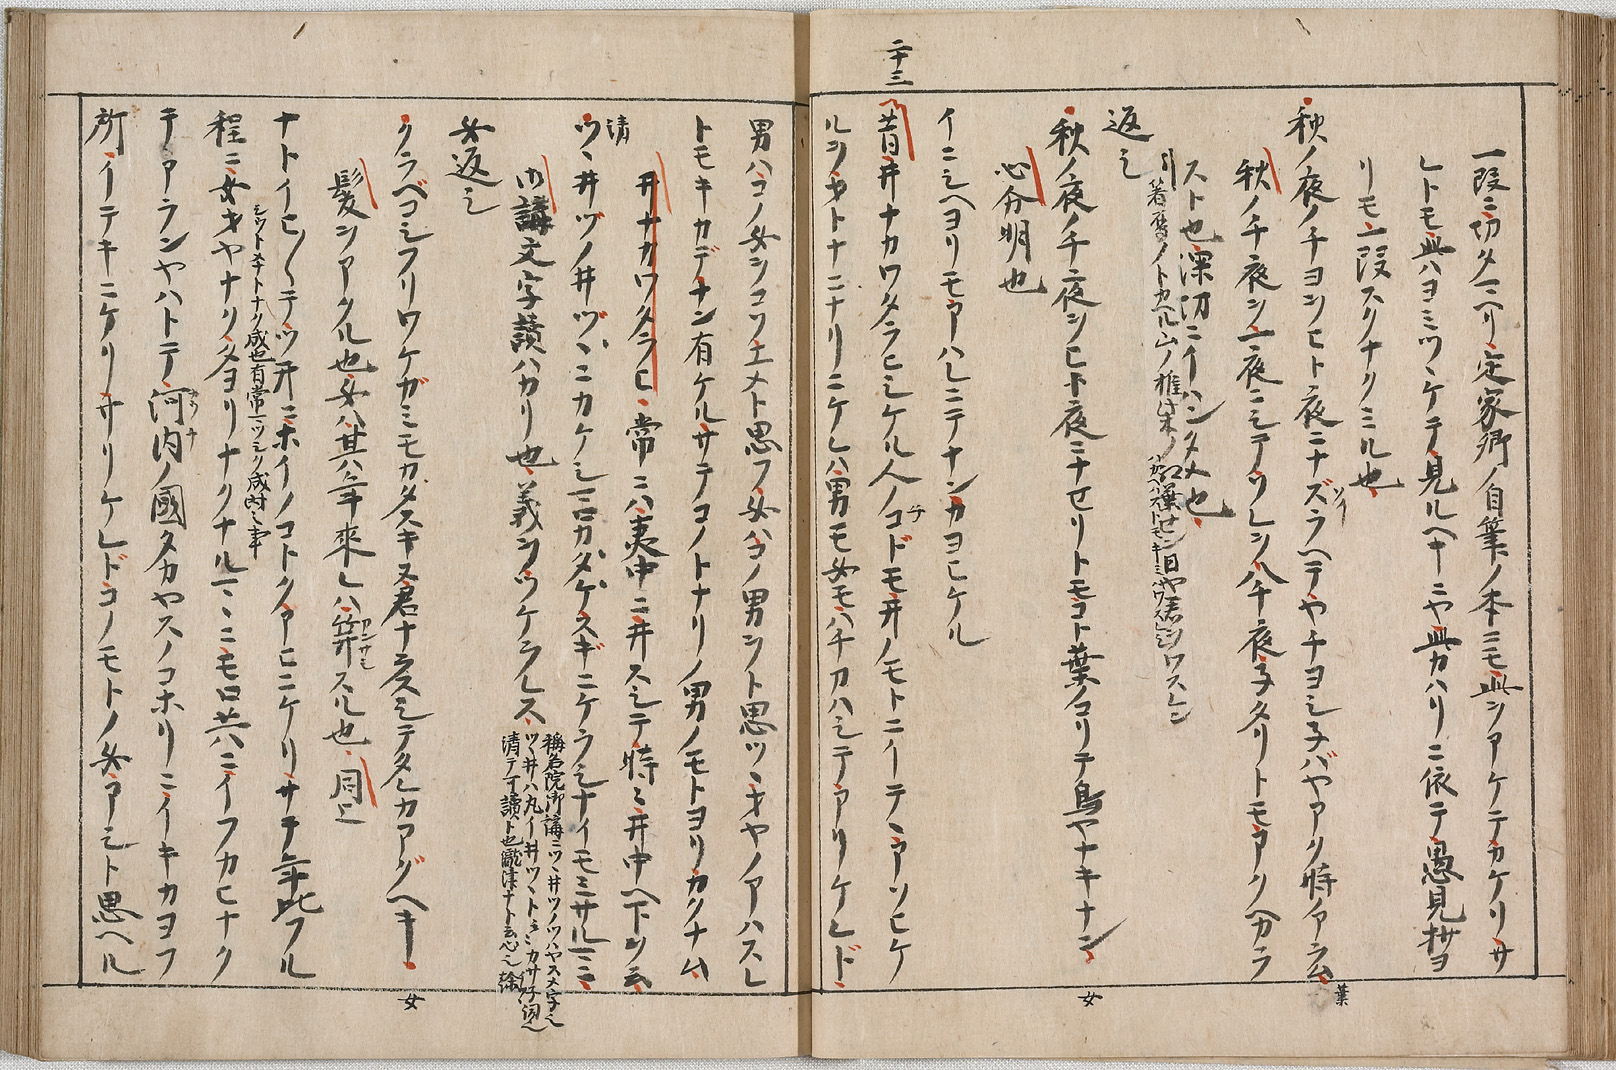 一段ニ切タ一ニヘリ定家卿ノ自筆ノ本ニモ此ンアケテカケリサ
レトモ此ハヨミツヽケテ見ルヘキニや此カハリニ依テ愚見抄ヨ
リモ一段スクナクミル也
秋ノ夜ノチヨンヒト夜ニナズラヘテやチヨシ子バヤアク時アラム
葉
秋ノ千夜ン一夜ニシテツレン八千夜子タリトモアクヘカラ
スト也深切ニイハンタメ也
返し
秋ノ夜ノ千夜ンヒト夜ニナセリトモコト葉ノコリテ鳥ヤナキナン
女
心分明也
イニシヘヨリモアハレニテナンカヨヒケル
二十三
昔井ナカワタラヒシケル人ノコドモ井ノモトニイーテヽアソヒケ
ルンオトナニナリニケレハ男モ女モハチカハシテアリケレド
男ハコノ女ンコソエメト思フ女ハコノ男ント思ツヽオヤノアハスレ
トモキカデナン有ケルサテコノトナリノ男ノモトヨリカクナム
井ナカワタラヒ常ニハ夷中ニ井スシテ時々井中ヘ下ツ云
清
ツヽ井ヅノ井ヅヽニカケシ一ロカタケスギニケラシナイモミサル一ニ
御講文字讀ハカリ也義ンツケラレス
稱名院御講ニツヽ井ツノツハヤスメ字シ
ツヽ井ハ丸イ井ツヽト
清テ可讀ト也瀧津ナト云心
女返し
クラベコシフリワケガミモカタスキヌ君ナラスシテタレカアグヘキ
女
髪ンアクル也女ハ其八年來レハ笄スル也同上
ナトイヒ〱テツ井ニホイノコトクアヒニケリサテ年比フル
程ニ女オヤナリタヨリナクナル一ヽニモロ共ニイフカヒナク
テアランヤハトテ河内ノ國タカヤスノコホリニイキカヨフ
所イテキニケリサリケレドコノモトノ女アシト思ヘル